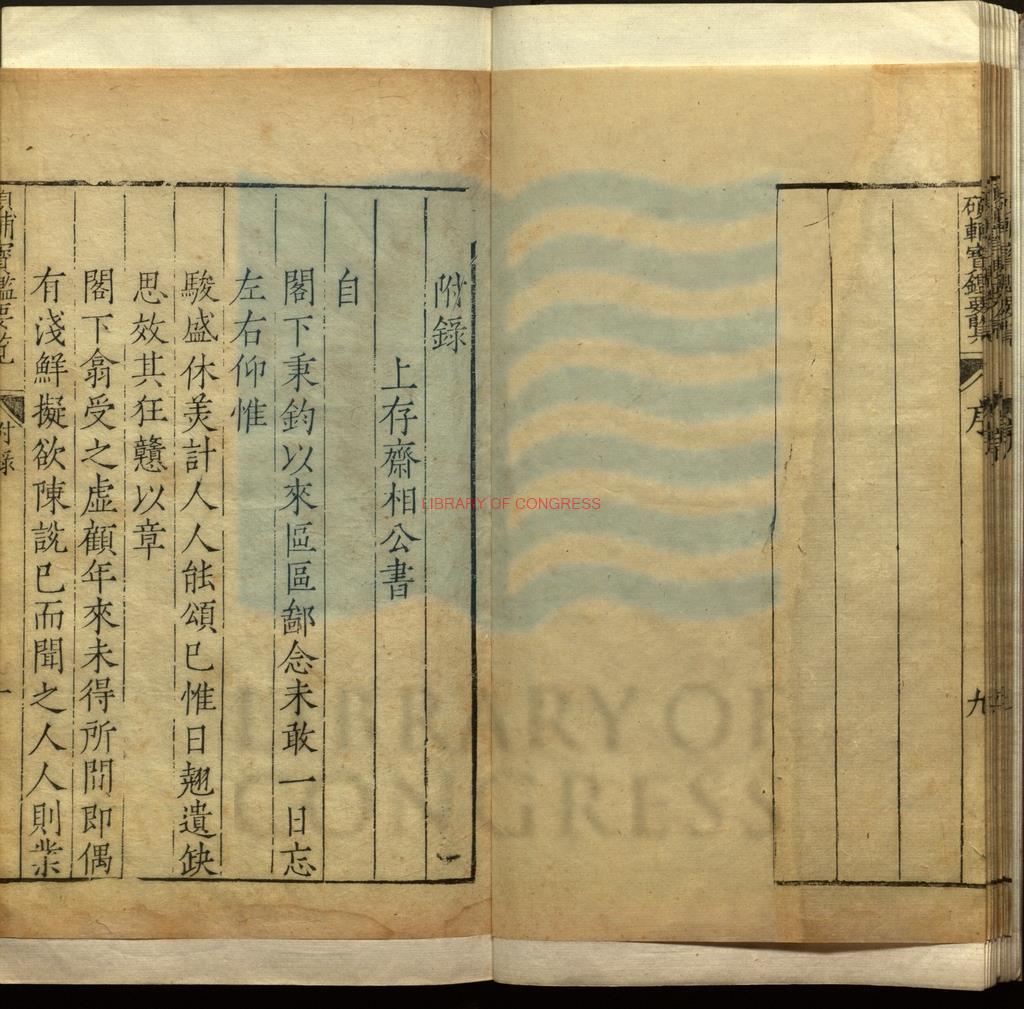 碩輔寳鑑要覽
序
九
附錄
上存齋相公書
自
閣下秉鈞以來區區鄙念未敢一日忘
左右仰惟
駿盛休美計人人能頌巳惟日翹遺缺
思效其狂戇以章
閣下翕受之虛顧年來未得所間即偶
有淺鮮擬欲陳說巳而聞之人人則業
碩輔寳鑑要覽
附錄
一
LIBRARY OF CONGRESS
LIBRARY OF
CONGRESS